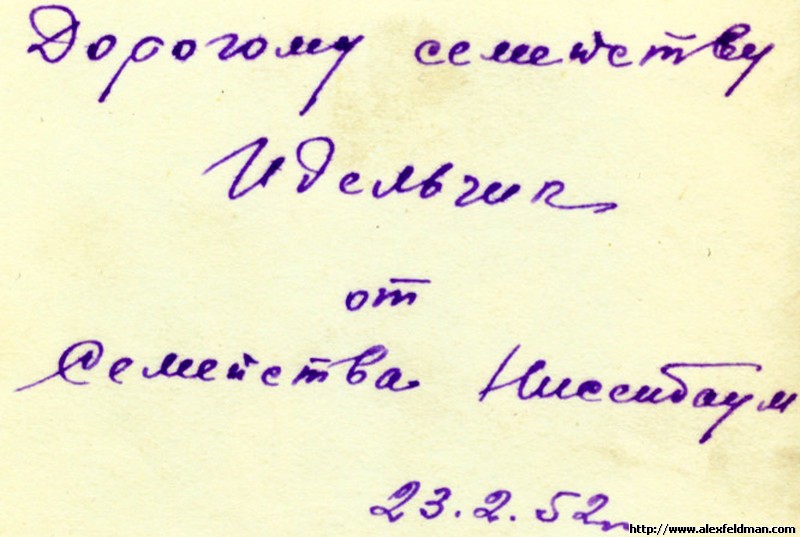 Дорогому семейству
Идельчик
от
Семейства Ниссибаум
23.2.52г
http://www.alexfeldman.com